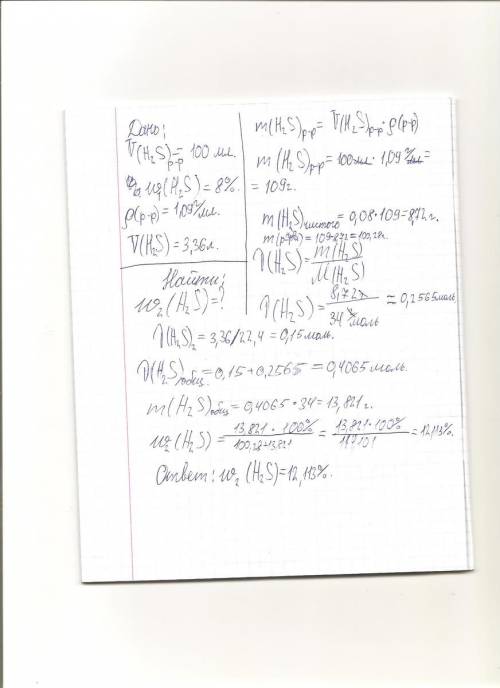 Дано:
V(H₂S)р-р = 100 мл.
w₁(H₂S) = 8%.
ρ(р-р) = 1,09 г/мл.
V(H₂S) = 3,36 л.
Найти:
w₂(H₂S) = ?
m(H₂S)р-р = V(H₂S)р-р · ρ(р-р)
m(H₂S)р-р = 100 мл · 1,09 г/мл =
= 109 г.
m(H₂S)чистого = 0,08 · 109 = 8,72 г.
= 109 - 8,72 = 100,28 г.
ν(H₂S) = m(H₂S) / M(H₂S)
ν(H₂S) = 8,72 г / 34 г/моль ≈ 0,2565 моль
ν(H₂S)₂ = 3,36/22,4 = 0,15 моль.
ν(H₂S)общ. = 0,15 + 0,2565 = 0,4065 моль.
m(H₂S)общ = 0,4065 * 34 = 13,821 г.
w₂(H₂S) = 13,821 · 100% / 100,28+13,821 = 13,821 · 100% / 114,101 = 12,113%.
Ответ: w₂(H₂S) = 12,113%.